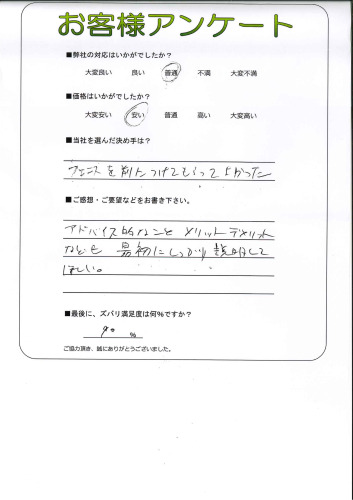 お客様アンケート
■弊社の対応はいかがでしたか？
大変良い 良い 普通 不満 大変不満
■価格はいかがでしたか？
大変安い 安い 普通 高い 大変高い
■当社を選んだ決め手は？
フェンスを つけてもらってよかった
■ご感想・ご要望などをお書き下さい。
アドバイス的なこと メリットデメリット
なども 最初にしっかり説明して
ほしい。
■最後に、ズバリ満足度は何%ですか？
90 %
ご協力頂き、誠にありがとうございました。